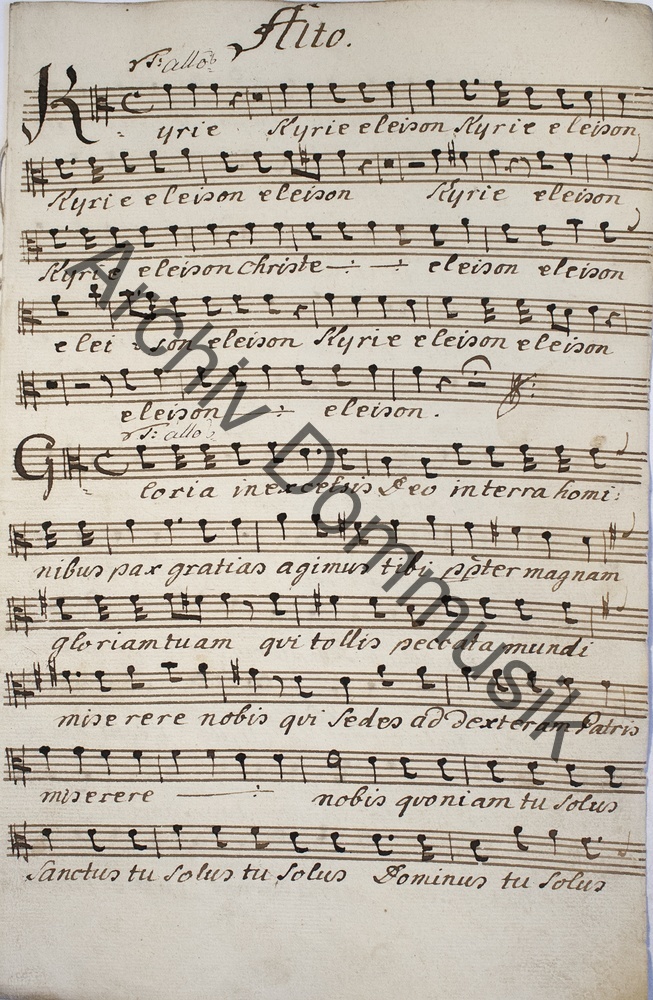 Alto.
Vt: allo
Kyrie Kyrie eleison Kyrie eleison
Kyrie eleison eleison Kyrie eleison
Kyrie eleison Christe -:- -:- eleison eleison
elei son eleison Kyrie eleison eleison
eleison -:- eleison.
Vt: allo
Gloria in excelsis Deo in terra homi:
nibus pax gratias agimus tibi ppter magnam
gloriam tuam qui tollis peccata mundi
miserere nobis qui sedes ad dexteram Patris
miserere -:- nobis quoniam tu solus
Sanctus tu solus tu solus Dominus tu solus
Archiv Dommusik